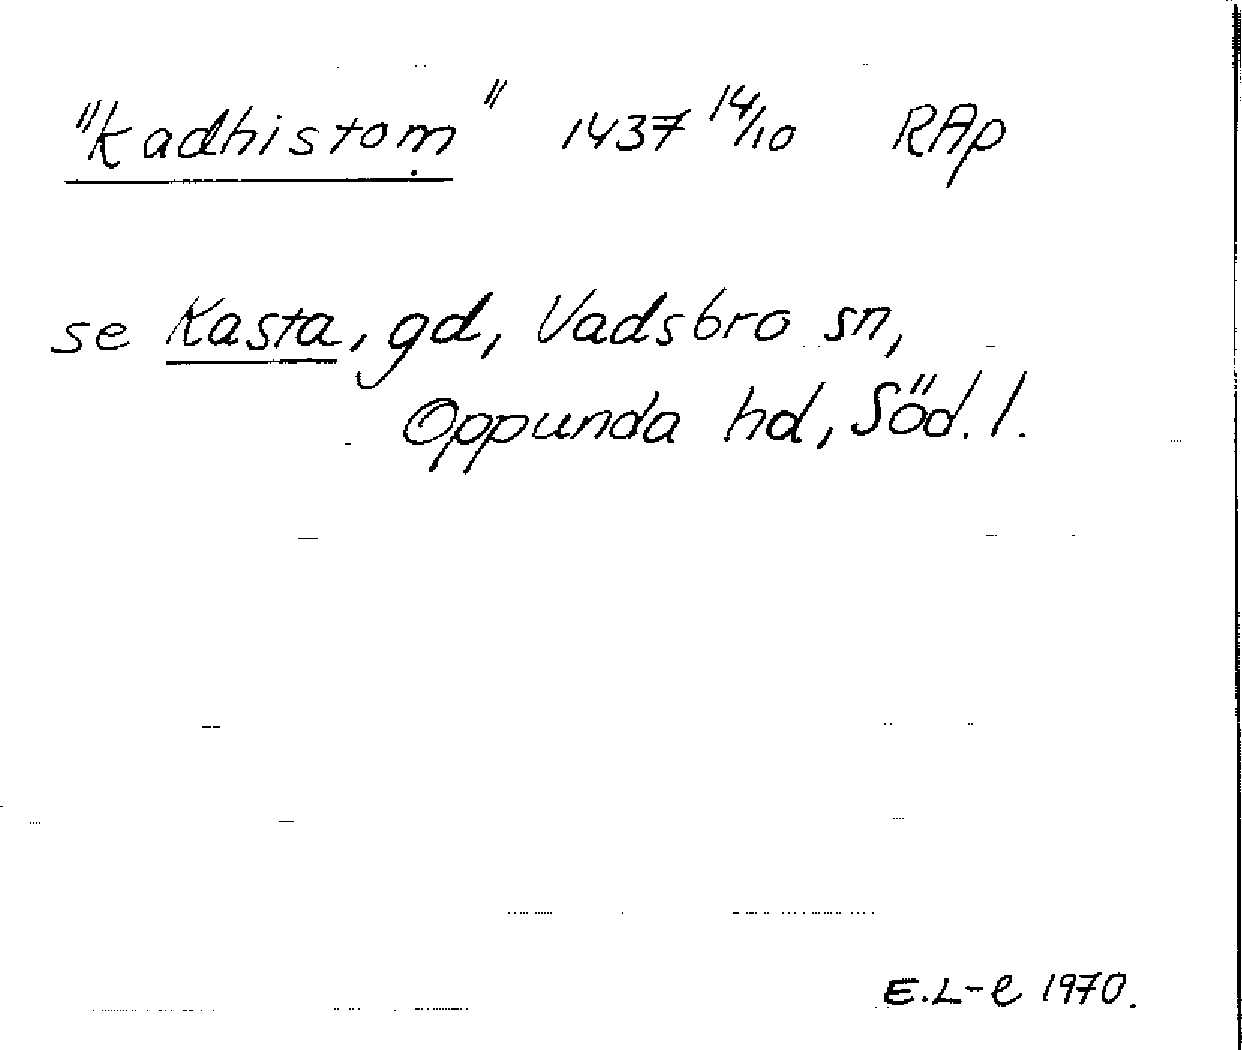 "kadhistoṃ" 1437 14/10 RAp
se Kasta, gd, Vadsbro sn,
Oppunda hd, Söd. l.
E.L-e 1970.